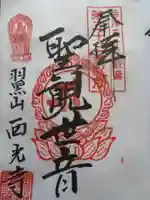 奉拝
聖観世音
羽黒山 西光寺